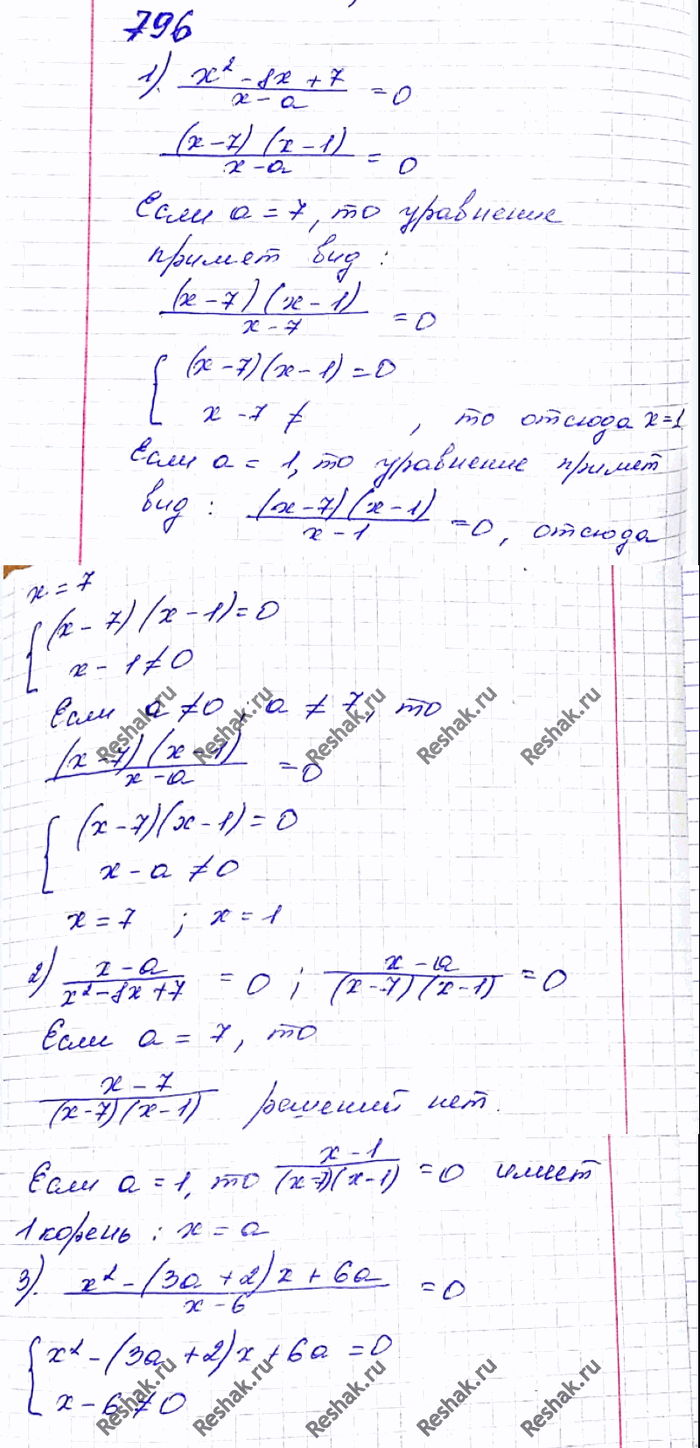 796
1). (x² - 8x + 7)/(x - a) = 0
((x - 7)(x - 1))/(x - a) = 0
Если a = 7, то уравнение
примет вид :
((x - 7)(x - 1))/(x - 7) = 0
{ (x - 7)(x - 1) = 0
x - 7 ≠ , то отсюда x = 1
Если a = 1, то уравнение примет
вид : ((x - 7)(x - 1))/(x - 1) = 0, отсюда
x = 7
{ (x - 7)(x - 1) = 0
x - 1 ≠ 0
Если a ≠ 0, a ≠ 7, то
((x - 7)(x - 1))/(x - a) = 0
{ (x - 7)(x - 1) = 0
x - a ≠ 0
x = 7 ; x = 1
2) (x - a)/(x² - 8x + 7) = 0 ; (x - a)/((x - 7)(x - 1)) = 0
Если a = 7, то
(x - 7)/((x - 7)(x - 1)) решений нет.
Если a = 1, то (x - 1)/((x - 7)(x - 1)) = 0 имеет
1 корень : x = a
3). (x² - (3a + 2)x + 6a)/(x - 6) = 0
{ x² - (3a + 2)x + 6a = 0
x - 6 ≠ 0
Reshak.ru Reshak.ru Reshak.ru Reshak.ru Reshak.ru
Reshak.ru Reshak.ru Reshak.ru Reshak.ru Reshak.ru